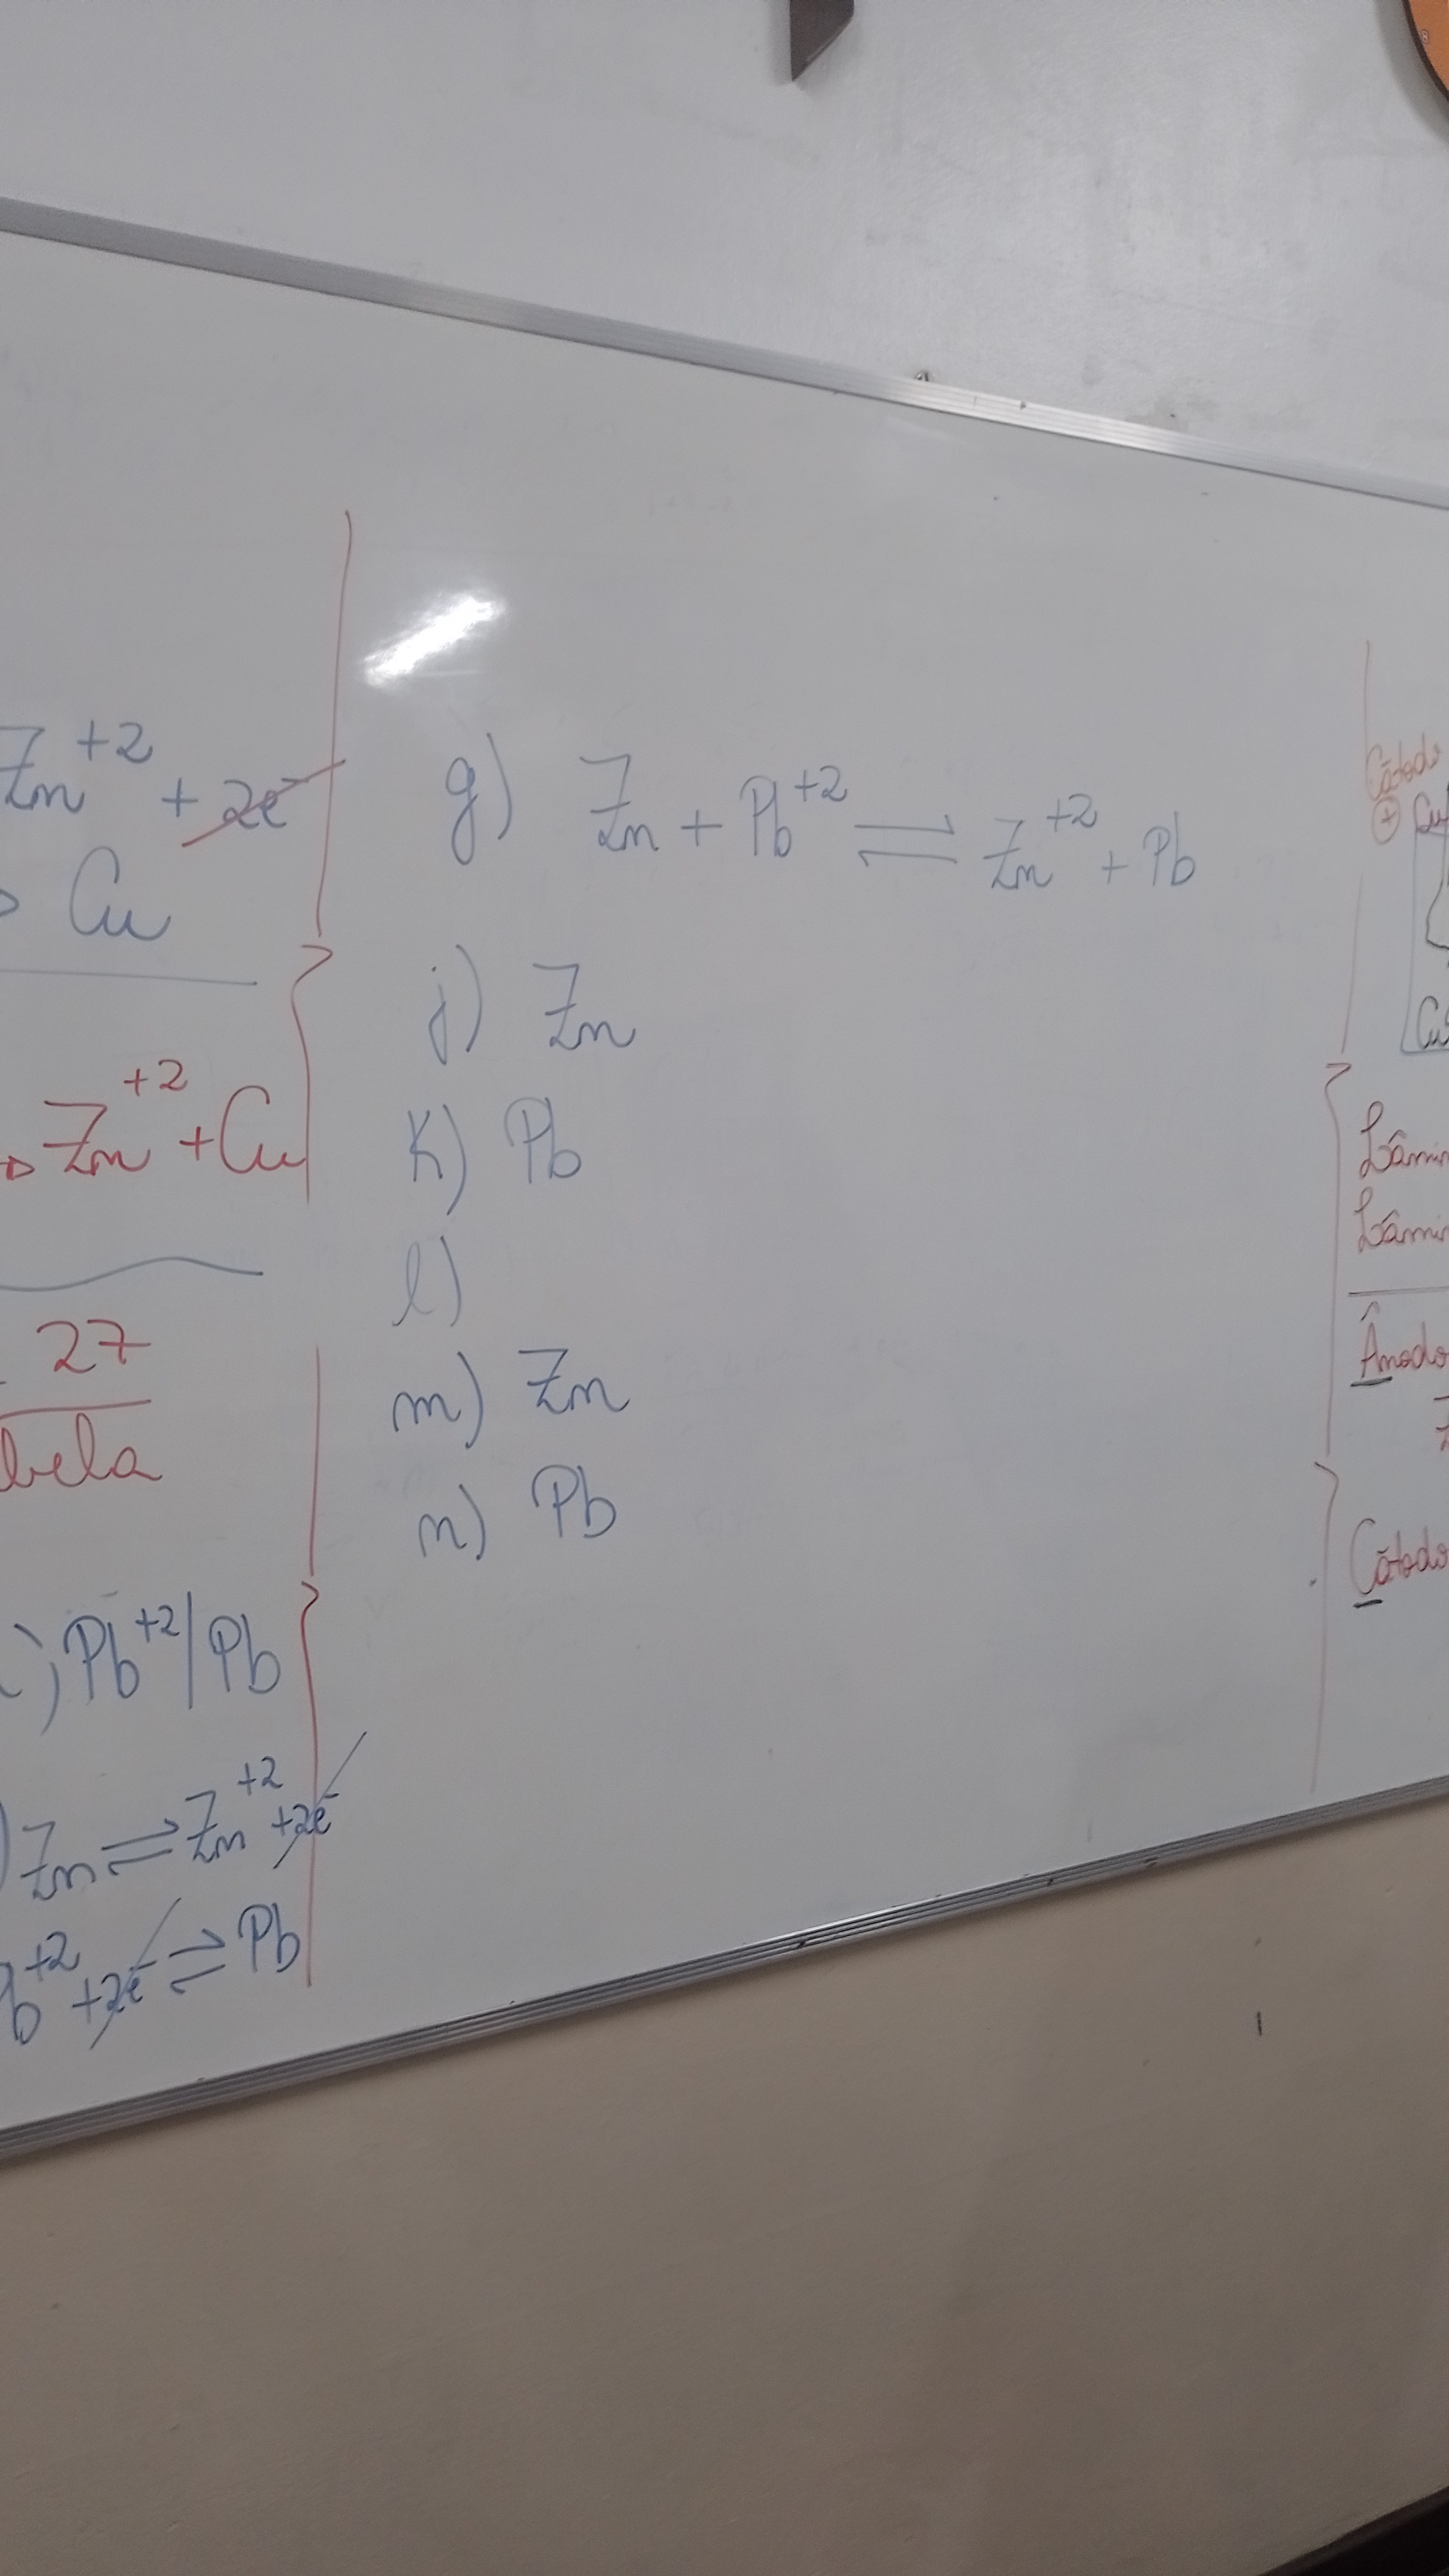 Zn+2 + 2e-
Cu
Zn+2 + Cu
27
bela
Pb+2/Pb
Zn ⇌ Zn+2 +2e-
b+2 +2e- ⇌ Pb
g) Zn + Pb+2 ⇌ Zn+2 + Pb
j) Zn
K) Pb
l)
m) Zn
n) Pb
Cátodo
+ Cu
Cu
Lâmin
Lâmin
Ânodo
Cátodo